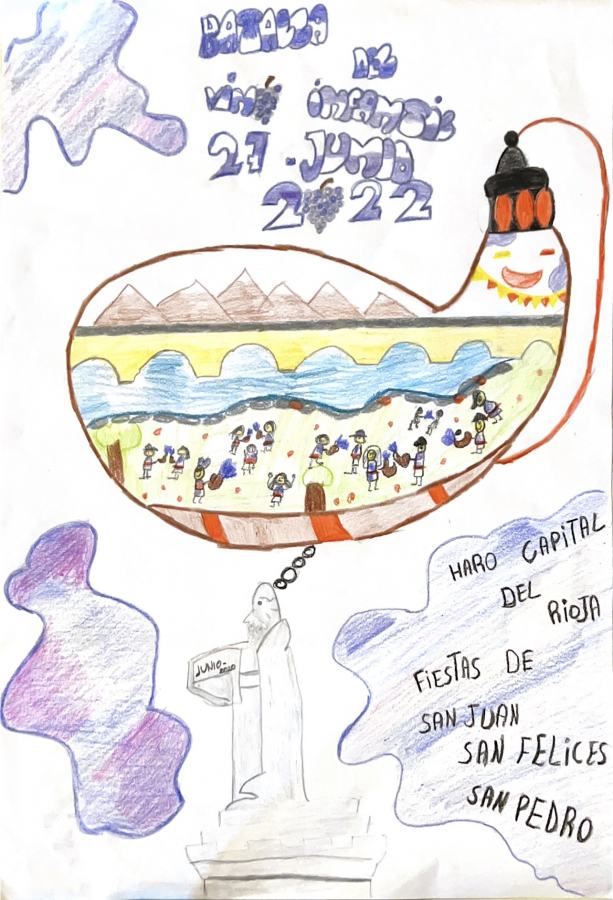 BATALLA
DEL
VINO INFANTIL
27 - JUNIO
2022
JUNIO-
2020
HARO CAPITAL
DEL
RIOJA
FIESTAS DE
SAN JUAN
SAN FELICES
SAN PEDRO